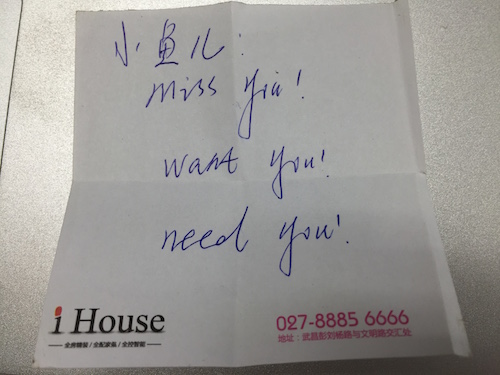 小鱼儿:
miss you!
want you!
need you!
i House
全房精装/全配家俬/全控智能
027-8885 6666
地址:武昌彭刘杨路与文明路交汇处